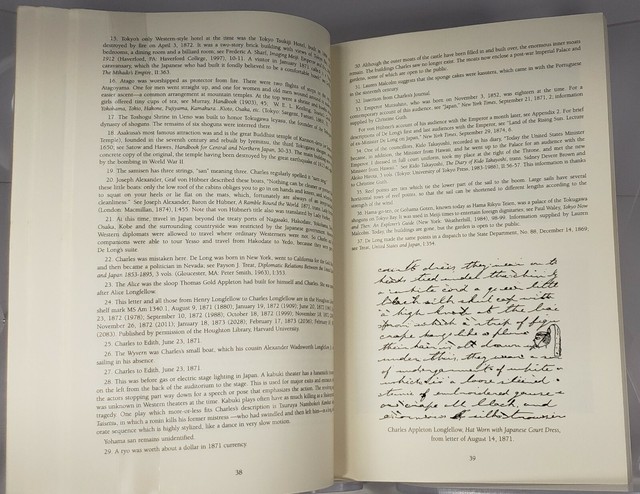 15. Tokyo's only Western-style hotel at the time was the Tokyo Tsukiji Hotel, built in
destroyed by fire on April 3, 1872. It was a two-story brick building with views of Tokyo
Bay, a central courtyard and billiard room, see Frederic A. Sharf, Imaging Meiji: Emperor and
1912 (Haverford, PA: Haverford College, 1997), 10-11. A visitor in January 1871 called
caravansary, which the Japanese who had built it fondly believed to be a comfortable
The Mikado's Empire, II:363.
16. Atago was worshipped as protector from fire. There were two flights of steps
Atagoyama. One for men went straight up, and one for women and old men wound
easier ascent—a common arrangement at mountain temples. At the top were a shrine and
girls offered tiny cups of tea; see Murray, Handbook (1903), 45; W. E. L. Keeling,
Yokohama, Tokio, Hakone, Fujiyama, Kamakura, Kioto, Osaka, etc. (Tokyo: Sargent, Farsari,
17. The Toshogu Shrine in Ueno was built to honor Tokugawa Ieyasu, the founder of the
dynasty of shoguns. The remains of six shoguns were interred there.
18. Asakusa's most famous attraction was and is the great Buddhist temple of Kannon
Temple), founded in the seventh century and rebuilt by Iyemitsu, the third Tokugawa
1650; see Satow and Hawes, Handbook for Central and Northern Japan, 30-33. The main building is
concrete copy of the original, the temple having been destroyed by the great earthquake of
by the bombing in World War II.
19. The samisen has three strings, "san" meaning three. Charles regularly spelled it "sam
20. Joseph Alexander, Graf von Hübner described these boats, "Nothing can be cleaner
these little boats: only the low roof of the cabin obliges you to go in on hands and knees,
to squat on your heels or lie flat on the mats, which, fortunately are always of an
cleanliness." See Joseph Alexander, Baron de Hübner, A Ramble Round the World, 1871, trans. Lady Herbert
(London: Macmillan, 1874), 1:455. Note that von Hübner's title also was translated by Lady
21. At this time, travel in Japan beyond the treaty ports of Nagasaki, Hakodate,
Osaka, Kobe and the surrounding countryside was restricted by the Japanese government.
Western diplomats were allowed to travel where ordinary Westerners were not. So Charles and
companions were able to tour Yesso and travel from Hakodate to Yedo, because they were
De Long's suite.
22. Charles was mistaken here. De Long was born in New York, went to California for the
and then became a politician in Nevada; see Payson J. Treat, Diplomatic Relations Between the United States
and Japan 1853-1895, 3 vols. (Gloucester, MA: Peter Smith, 1963), 1:353.
23. The Alice was the sloop Thomas Gold Appleton had built for himself and Charles. She was
after Alice Longfellow.
24. This letter and all those from Henry Longfellow to Charles Longfellow are in the Houghton
shelf mark MS Am 1340.
(2083). Published by permission of the Houghton Library, Harvard University.
25. Charles to Edith, June 23, 1871
26. The Wyvern was Charles's small boat, which his cousin Alexander Wadsworth Longfellow
sailing in his absence.
27. Charles to Edith, June 23, 1871
28. This was before gas or electric stage lighting in Japan. A kabuki theater has a hanamichi
on the left from the back of the auditorium to the stage. This is used for major exits and
the actors stopping part way down for a speech or pose that emphasizes the action. The
was unknown in Western theaters at the time. Kabuki plays often have as much killing as a
tragedy. One play which more-or-less fits Charles's description is Tsuruya Namboku's
Taisetsu, in which a ronin kills his former mistress—who had swindled and then left him—
orate sequence which is highly stylized, like a dance in very slow motion.
Yohama san remains unidentified.
29. A ryo was worth about a dollar in 1871 currency.
38
30. Although the outer moats of the castle have been filled in and built over, the enormous inner moats
remain. The buildings Charles saw no longer exist. The moats now enclose a post-war Imperial Palace and
gardens, some of which are open to the public.
31. Laurens Malcolm, suggests that the sponge cakes were kasutera, which came in with the Portuguese
in the sixteenth century.
32. Insertion from Charles's Journal.
33. Emperor Mutsuhito, who was born on November 3, 1852, was eighteen at the time. For a
contemporary account of this audience, see "Japan" New York Times, September 21, 1871, 2. Information
supplied by Christine Guth.
For von Hübner's account of his audience with the Emperor a month later, see Appendix 2. For brief
descriptions of De Long's first and last audiences with the Emperor, see "Land of the Rising Sun, Lecture
of ex-Minister De Long on Japan," New York Times, September 29, 1874, 6.
34. One of the councillors, Kido Takayoshi, recorded in his diary, "Today the United States Minister
became, in addition, the Minister from Hawaii, and he went up to the Palace for an audience with the
Emperor. I dressed in full court uniform, took my place at the right of the Throne, and met the new
Minister from Hawaii." See Kido Takayoshi, The Diary of Kido Takayoshi, trans. Sidney Devere Brown and
Akiko Hirota, 3 vols. (Tokyo: University of Tokyo Press, 1983-1986), II:56-57. This information is thanks
to Christine Guth.
35. Reef points are ties which tie the lower part of the sail to the boom. Large sails have several
horizontal rows of reef points, so that the sail can be shortened to different lengths according to the
strength of the wind.
36. Hama goten, or Gohama Goten, known today as Hama Rikyu Teien, was a palace of the Tokugawa
shoguns on Tokyo Bay. It was used in Meiji times to entertain foreign dignitaries; see Paul Waley, Tokyo Now
and Then: An Explorer's Guide (New York: Weatherhill, 1984), 88-89. Information supplied by Laurens
Malcolm. Today, the buildings are gone, but the garden is open to the public.
37. De Long made the same points in a dispatch to the State Department, No. 88, December 14, 1869;
see Treat, United States and Japan, 1:334.
court dress they wear on the
head tied under the chin by
a white cord a queer little
black silk skull cap with
a high knot at the back
from which a strip of
crape hangs like a plume
their hair is all drawn
under this they wear a
of undergarments of white
which is a loose sleeved
of embroidered gauze
or crape all black and
enormous silk trousers
Charles Appleton Longfellow, Hat Worn with Japanese Court Dress,
from letter of August 14, 1871.
39